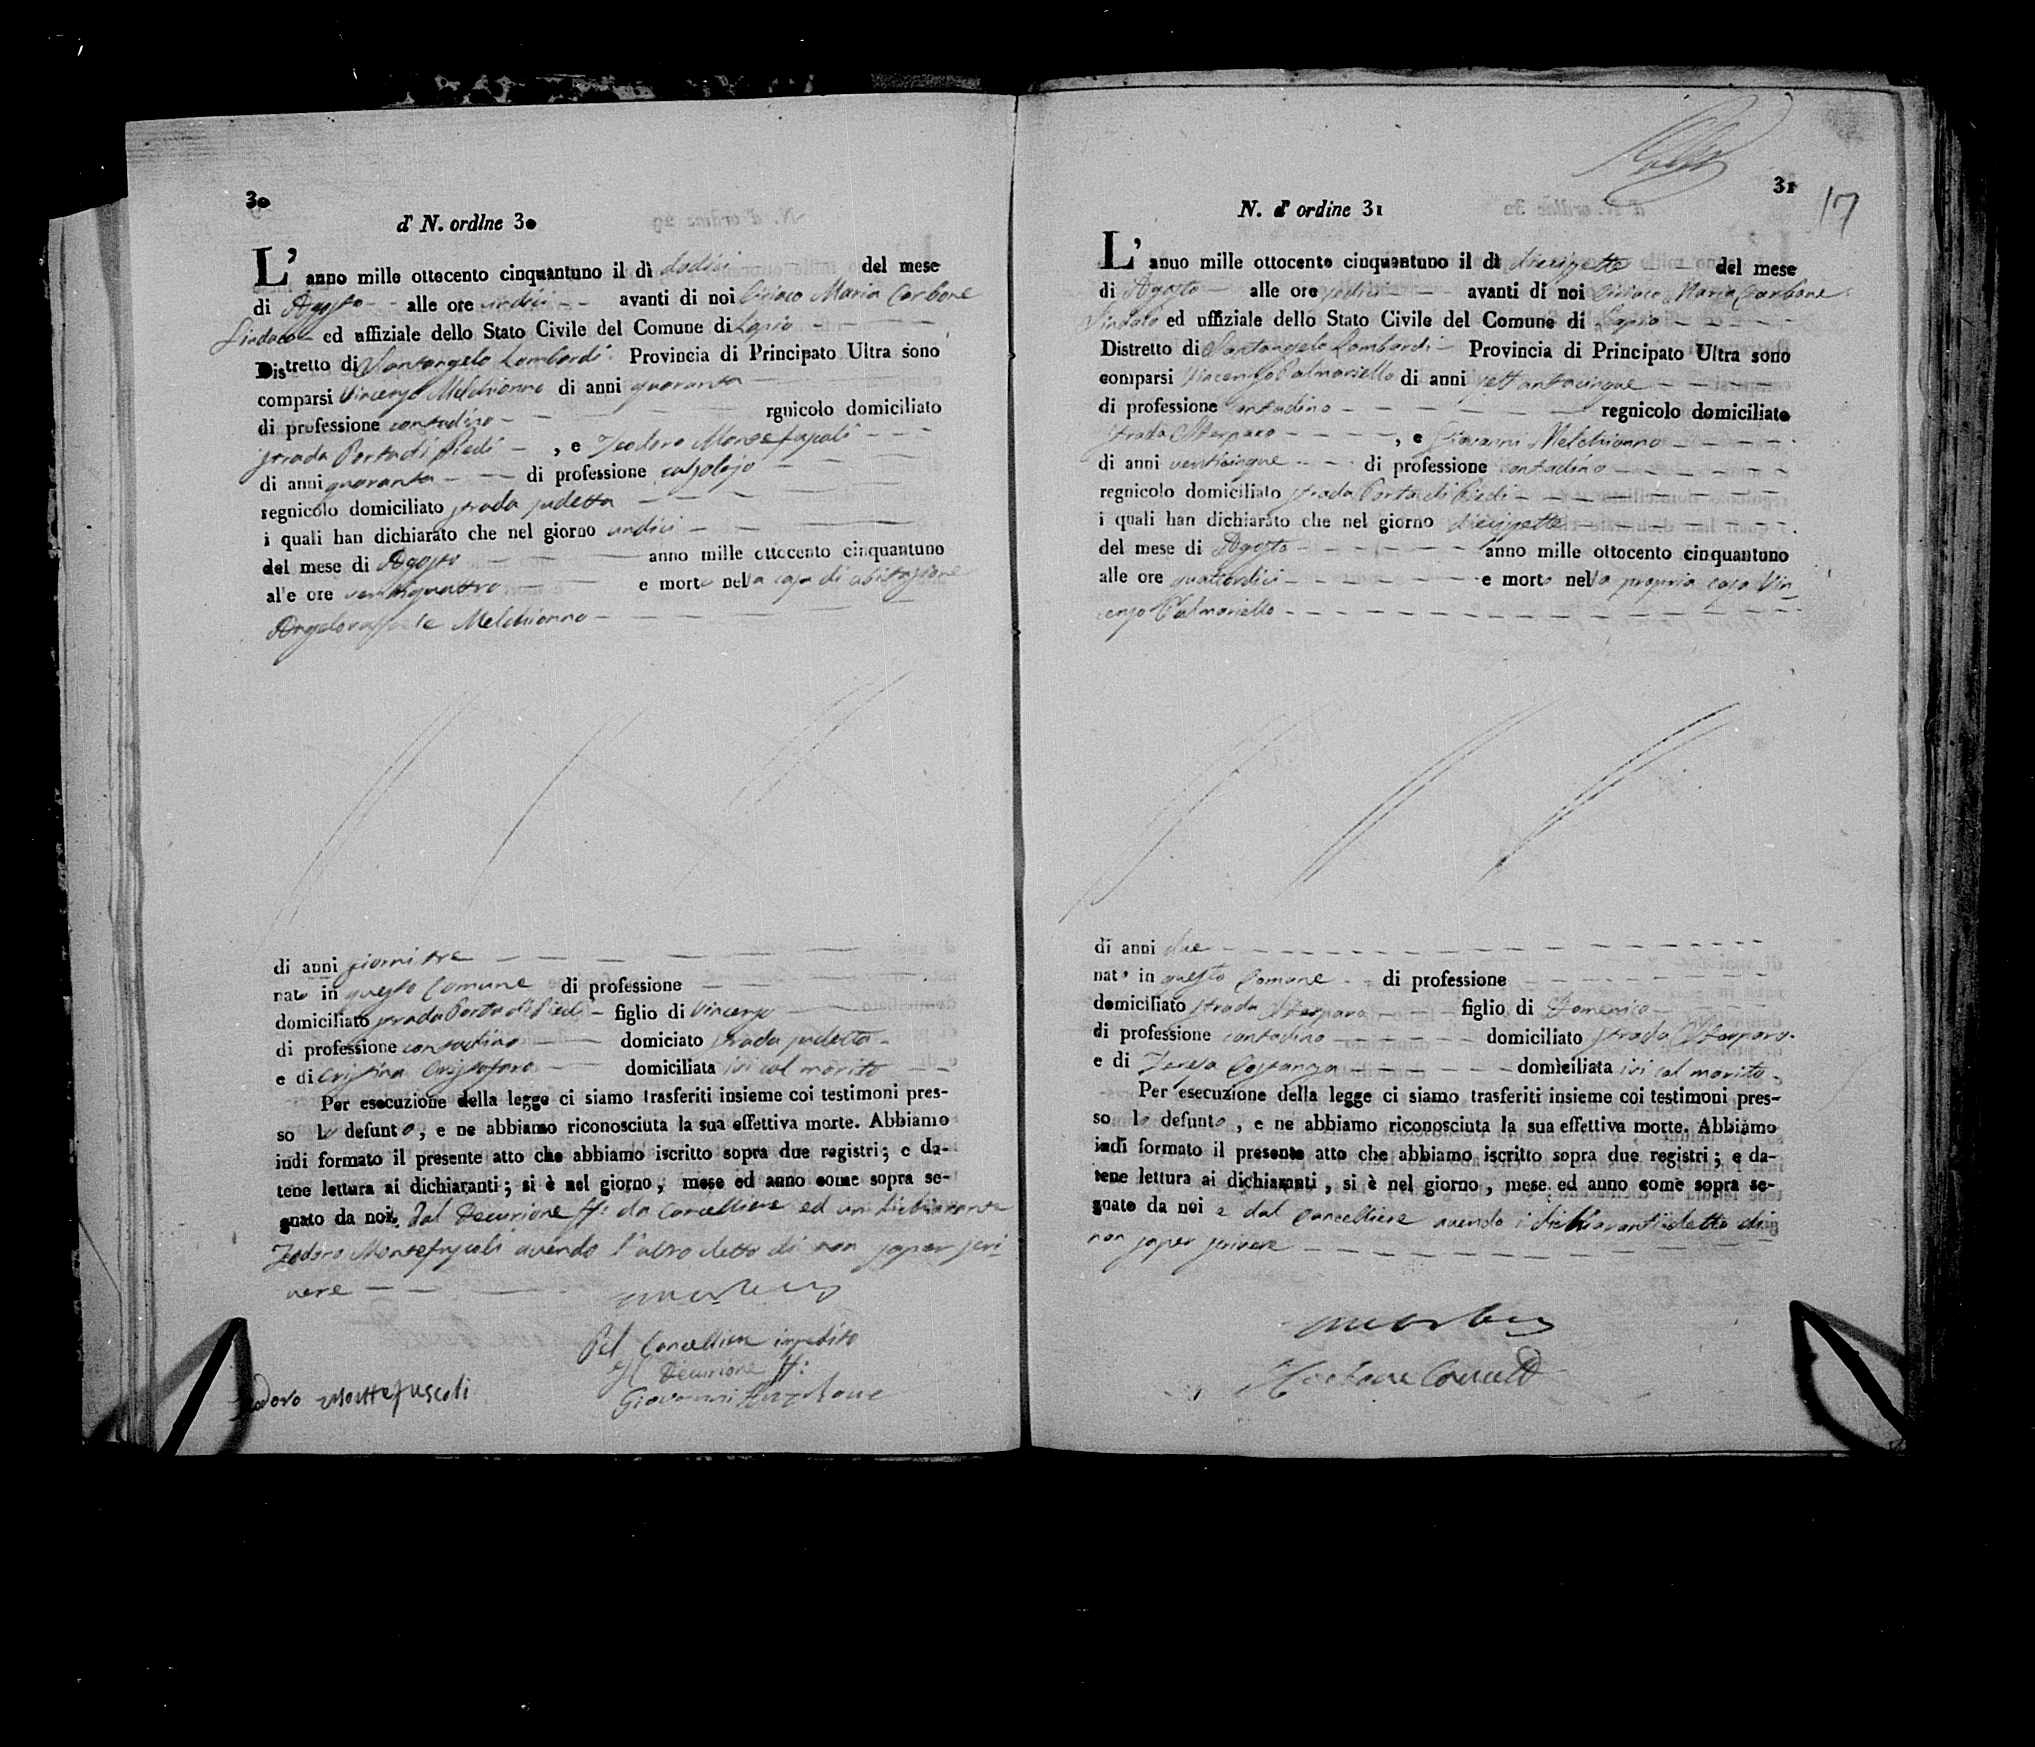 30
d' N. ordlne 30
L' anno mille ottocento cinquantuno il dì dodici del mese
di Agosto alle ore undici avanti di noi Ciriaco Maria Carbone
Sindaco ed uffiziale dello Stato Civile del Comune di Lapio
Distretto di Santangelo Lombardi Provincia di Principato Ultra sono
comparsi Vincenzo Melchionno di anni quaranta
di professione contadino regnicolo domiciliato
strada Porta di Piedi , e Teodoro Montefuscoli
di anni quaranta di professione calzolajo
regnicolo domiciliato strada sudetta
i quali han dichiarato che nel giorno undici
del mese di Agosto anno mille ottocento cinquantuno
al'e ore ventiquattro e morto nella casa di abitazione
Angeloraffaele Melchionno
di anni giorni tre
nato in questo Comune di professione
domiciliato strada Porta di Piedi figlio di Vincenzo
di professione contadino domiciato strada sudetta
e di Cristina Cristofaro domiciliata ivi col marito
Per esecuzione della legge ci siamo trasferiti insieme coi testimoni pres-
so lo defunto, e ne abbiamo riconosciuta la sua effettiva morte. Abbiamo
indi formato il presente atto che abbiamo iscritto sopra due registri; e da-
tene lettura ai dichiaranti; si è nel giorno, mese ed anno come sopra se-
gnato da noi, dal Decurione ff: da Cancelliere ed un dichiarante
Teodoro Montefuscoli avendo l'altro detto di non saper scri
vere
Pel Cancelliere impedito
Il Decurione ff:
Giovanni Carbone
Teodoro Montefuscoli
31
17
N. d' ordine 31
L' anno mille ottocento cinquantuno il dì diecisette del mese
di Agosto alle ore sedici avanti di noi Ciriaco Maria Carbone
Sindaco ed uffiziale dello Stato Civile del Comune di Lapio
Distretto di Santangelo Lombardi Provincia di Principato Ultra sono
comparsi Vincenzo Palmariello di anni settantacinque
di professione contadino regnicolo domiciliato
strada , e Giovanni Melchionno
di anni venticinque di professione contadino
regnicolo domiciliato strada Porta di Piedi
i quali han dichiarato che nel giorno diecisette
del mese di Agosto anno mille ottocento cinquantuno
alle ore quattordici e morto nella propria casa Vin
cenzo Palmariello
di anni due
nato in questo Comune di professione
domiciliato strada figlio di Domenico
di professione contadino domiciliato strada
e di Teresa Costanza domiciliata ivi col marito
Per esecuzione della legge ci siamo trasferiti insieme coi testimoni pres-
so lo defunto, e ne abbiamo riconosciuta la sua effettiva morte. Abbiamo
indi formato il presente atto che abbiamo iscritto sopra due registri; e da-
tene lettura ai dichiaranti, si è nel giorno, mese ed anno come sopra se-
gnato da noi e dal Cancelliere avendo i dichiaranti detto di
non saper scrivere